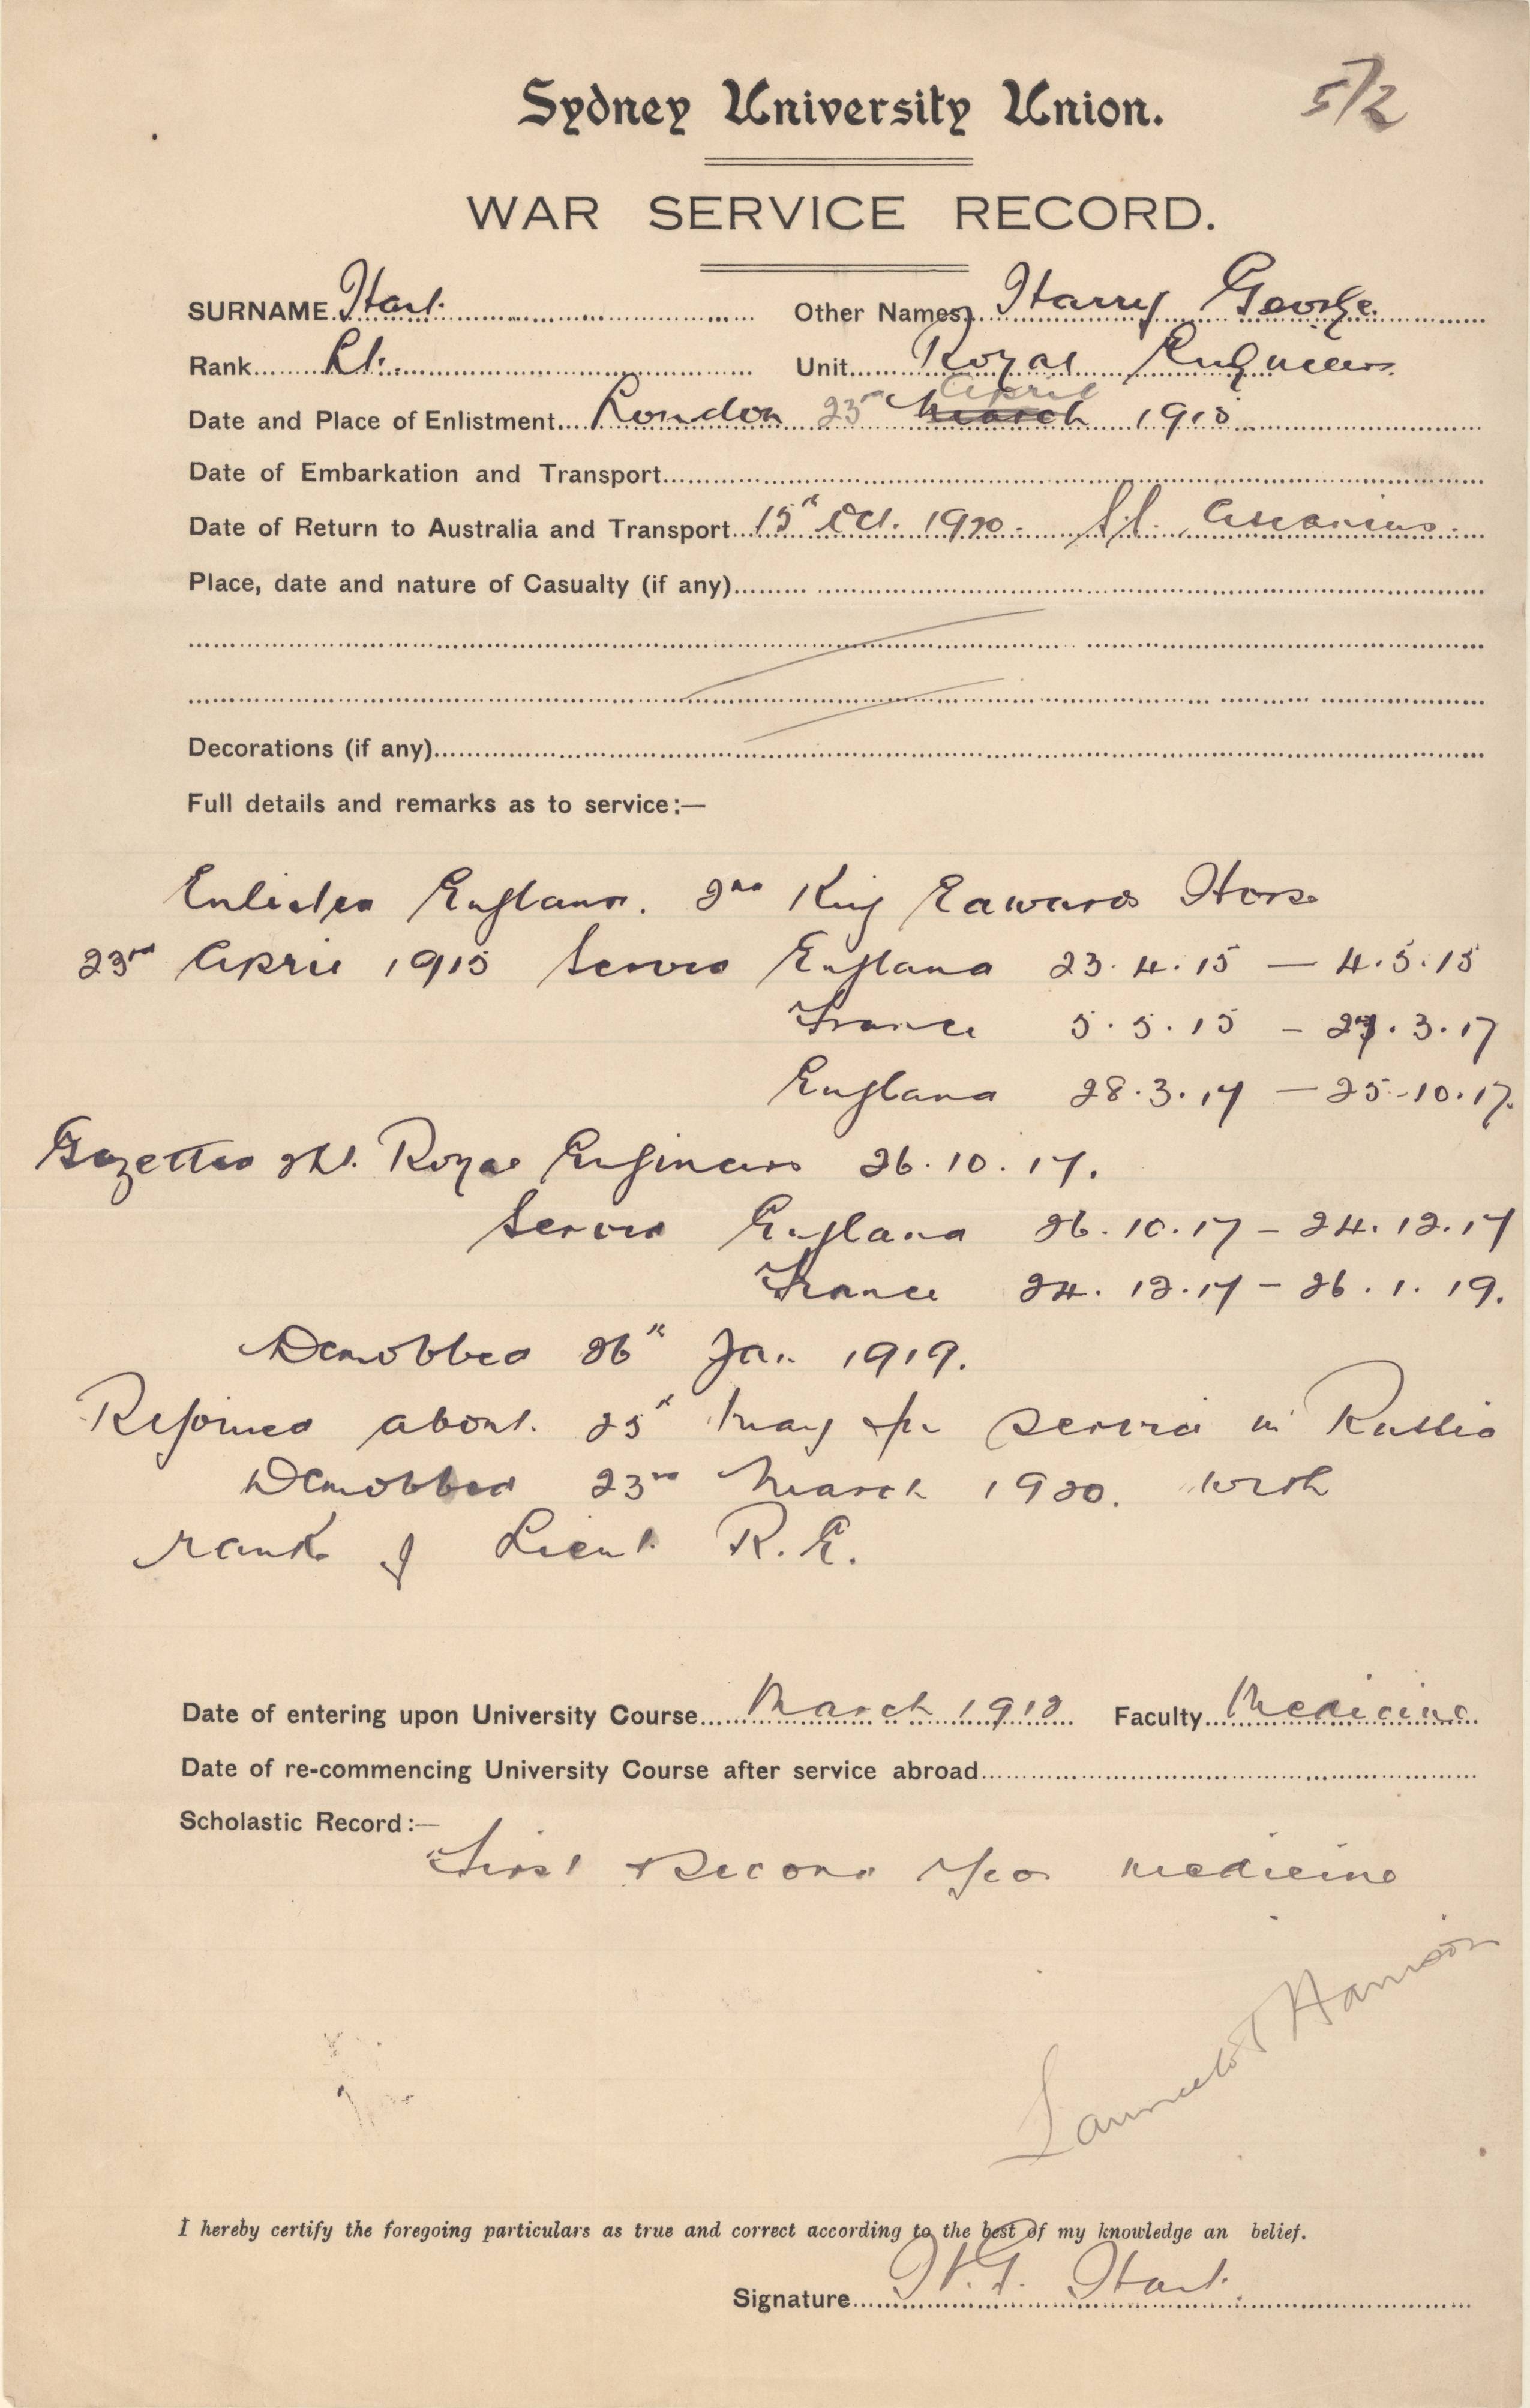 Sydney University Union. 5/2
WAR SERVICE RECORD.
SURNAME Hart. Other Names Harry George
Rank Lt. Unit Royal Engineers
April
Date and Place of Enlistment London 23rd March 1915
Date of Embarkation and Transport
Date of Return to Australia and Transport 15th Oct. 1920. S.S. Ascanius.
Place, date and nature of Casualty (if any)
Decorations (if any)
Full details and remarks as to service:—
Enlisted England. 2nd King Edwards Horse
23rd April 1915 Served England 23.4.15 — 4.5.15
France 5.5.15 — 27.3.17
England 28.3.17 — 25-10.17.
Gazetted 2Lt. Royal Engineers 26.10.17.
Served England 26.10.17 — 24.12.17
France 24.12.17 — 26.1.19.
Demobbed 26th Jan. 1919.
Rejoined about 25th May for service in Russia
Demobbed 23rd March 1920. with
rank of Lieut. R.E.
Date of entering upon University Course March 1912 Faculty Medicine
Date of re-commencing University Course after service abroad
Scholastic Record:—
First & Second Year medicine
Launcelot Harrison
I hereby certify the foregoing particulars as true and correct according to the best of my knowledge an belief.
Signature H.G. Hart.